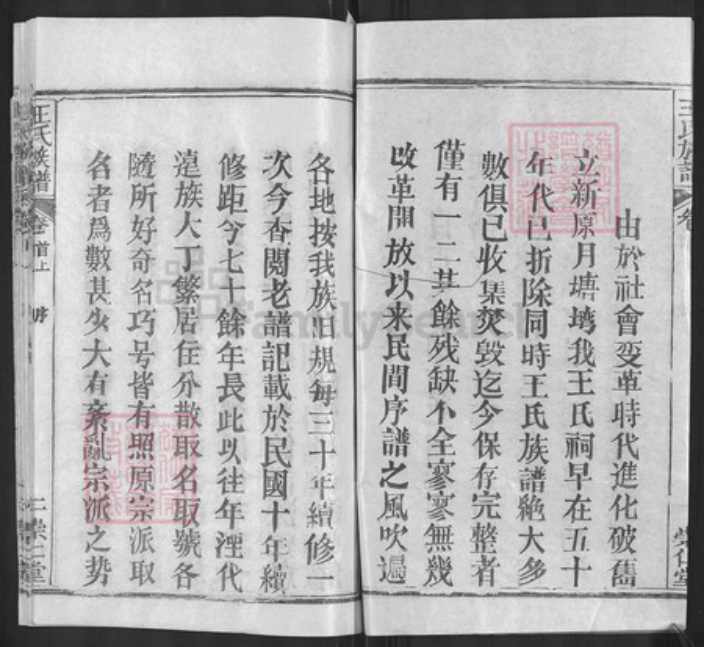 王氏族譜 卷
由於社會变革時代進化破旧
立新原月塘塆我王氏祠早在五十
年代已折除同時王氏族譜絶大多
數俱已收集焚毀迄今保存完整者
僅有一二其餘残缺不全寥寥無幾
改革開放以来民間序譜之風吹遍
崇仁堂
各地按我族旧規每三十年續修一
次今查閱老譜記載於民國十年續
修距今七十餘年長此以往年湮代
遠族大丁繁居住分散取名取號各
隨所好奇名巧号皆有照原宗派取
名者爲數甚少大有紊亂宗派之势
王氏族譜 卷首上 序
崇仁堂